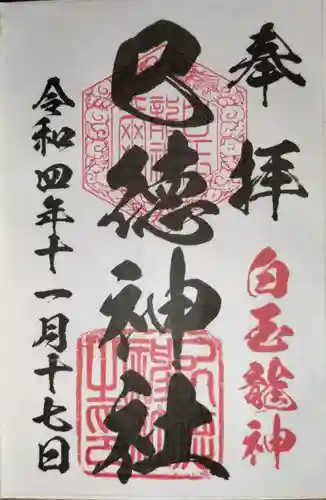 奉拝
白玉龍神
巳徳神社
令和四年十一月十七日